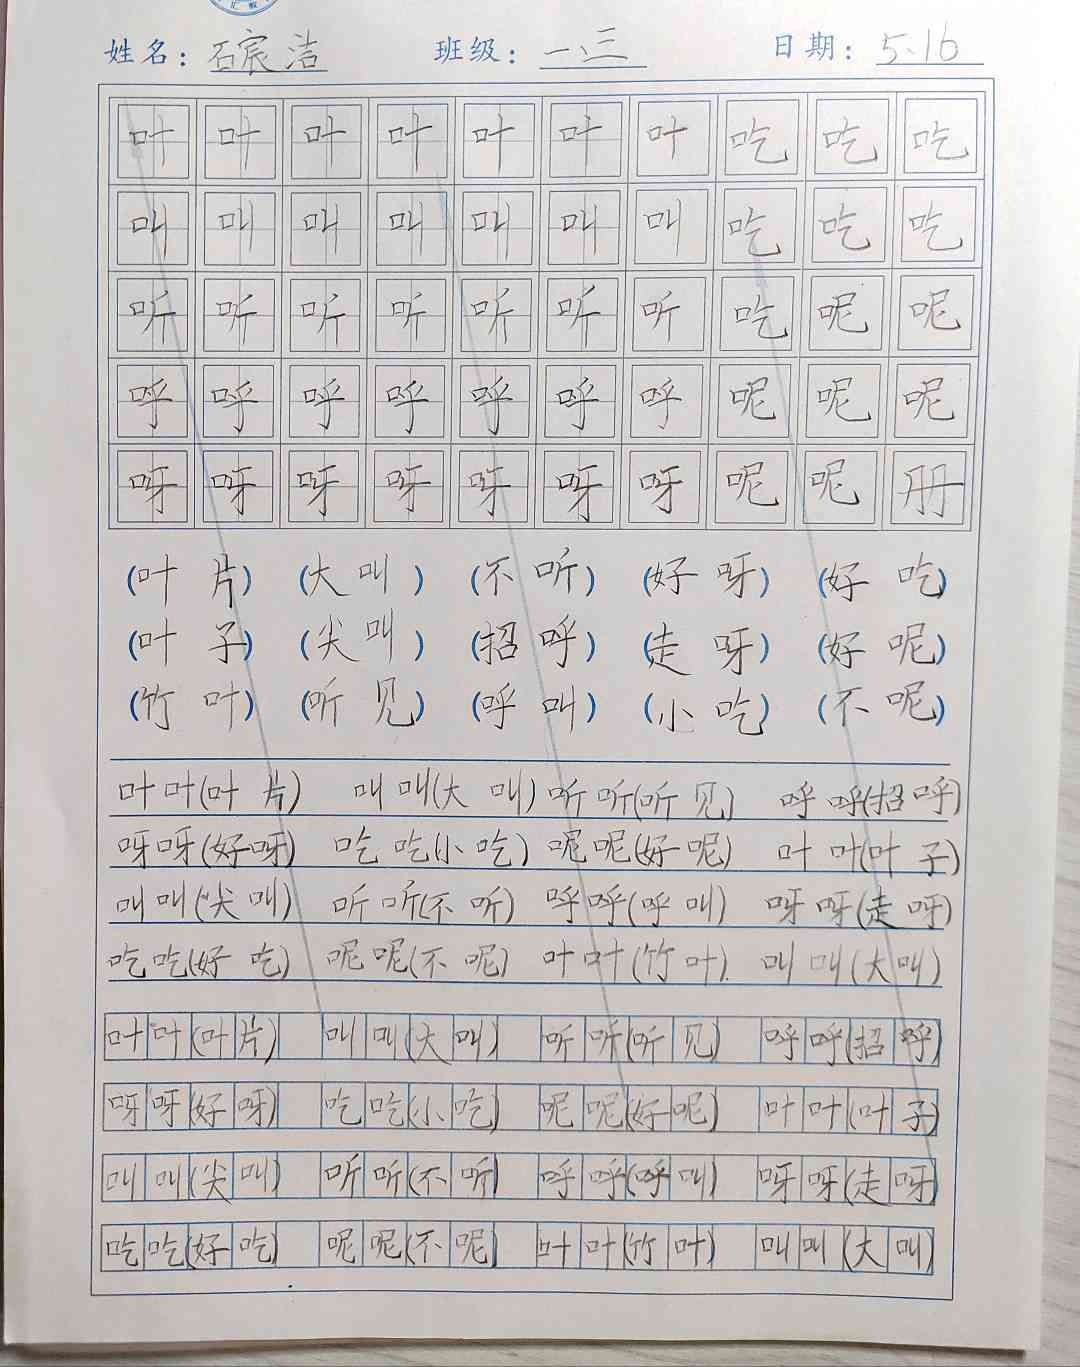 姓名：石宸洁 班级：一、三 日期：5.16
叶 叶 叶 叶 叶 叶 叶 吃 吃 吃
叫 叫 叫 叫 叫 叫 叫 吃 吃 吃
听 听 听 听 听 听 听 吃 呢 呢
呼 呼 呼 呼 呼 呼 呼 呢 呢 呢
呀 呀 呀 呀 呀 呀 呀 呢 呢 册
(叶片) (大叫) (不听) (好呀) (好吃)
(叶子) (尖叫) (招呼) (走呀) (好呢)
(竹叶) (听见) (呼叫) (小吃) (不呢)
叶叶(叶片) 叫叫(大叫) 听听(听见) 呼呼(招呼)
呀呀(好呀) 吃吃(小吃) 呢呢(好呢) 叶叶(叶子)
叫叫(尖叫) 听听(不听) 呼呼(呼叫) 呀呀(走呀)
吃吃(好吃) 呢呢(不呢) 叶叶(竹叶) 叫叫(大叫)
叶叶(叶片) 叫叫(大叫) 听听(听见) 呼呼(招呼)
呀呀(好呀) 吃吃(小吃) 呢呢(好呢) 叶叶(叶子)
叫叫(尖叫) 听听(不听) 呼呼(呼叫) 呀呀(走呀)
吃吃(好吃) 呢呢(不呢) 叶叶(竹叶) 叫叫(大叫)